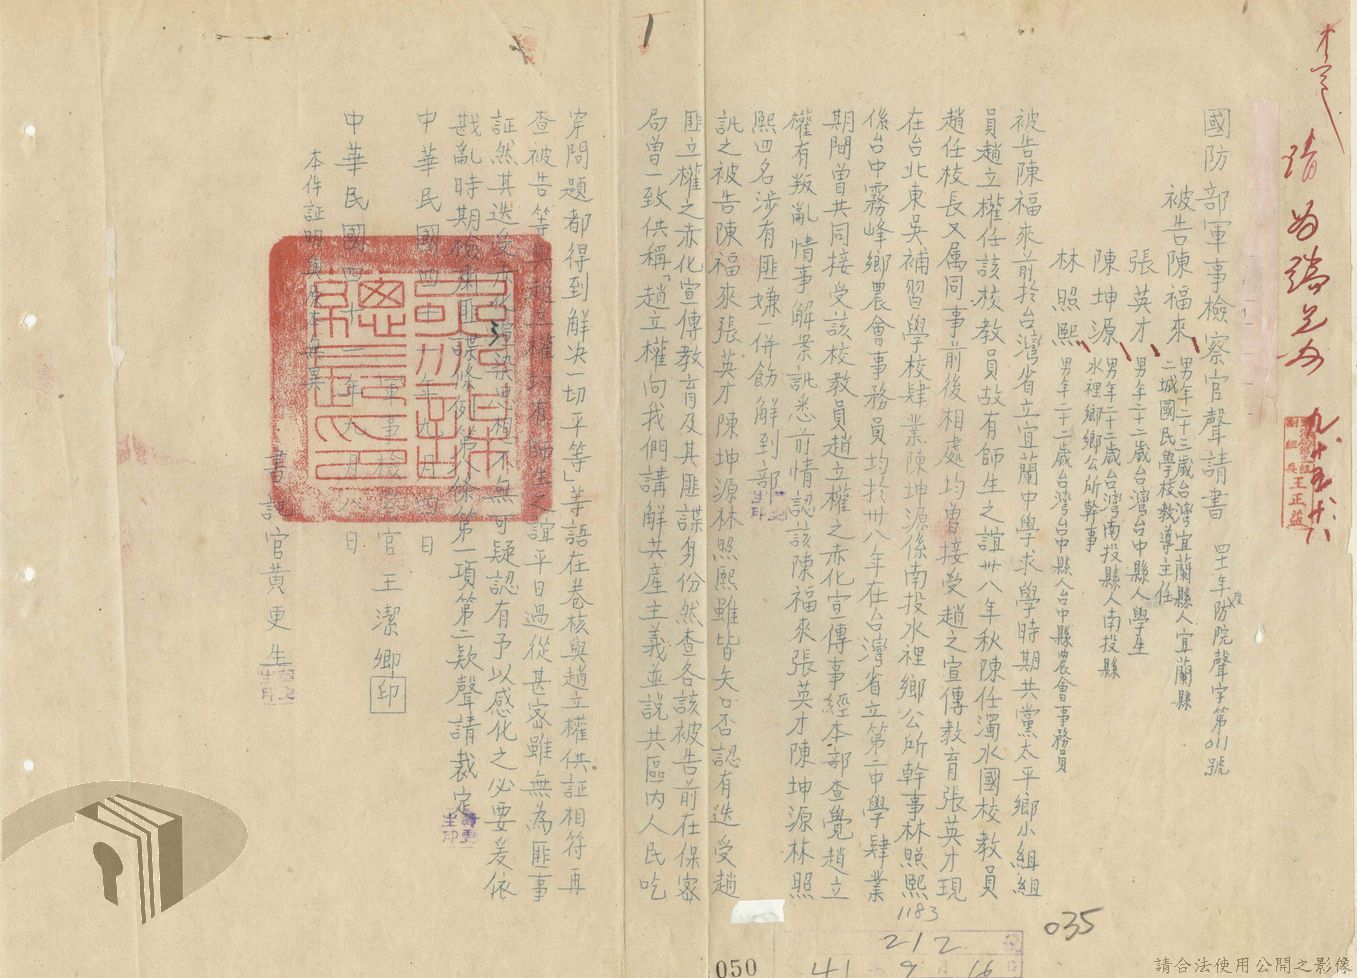 國防部軍事檢察官聲請書 四十一年度防院聲字第011號
被告陳福來 男年二十三歲台灣宜蘭縣人宜蘭縣
二城國民學校教導主任
張英才 男年二十二歲台灣台中縣人學生
陳坤源 男年二十二歲台灣南投縣人南投縣
水裡鄉鄉公所幹事
林照熙 男年二十二歲台灣台中縣人台中縣農會事務員
被告陳福來前於台灣省立宜蘭中學求學時期共黨太平鄉小組組
員趙立權任該校教員故有師生之誼卅八年秋陳任濁水國校教員
趙任校長又属同事前後相處均曾接受趙之宣傳教育張英才現
在台北東吳補習學校肆業陳坤源係南投水裡鄉公所幹事林照熙
係台中霧峰鄉農會事務員均於卅八年在台灣省立第二中學肆業
期間曾共同接受該校教員趙立權之赤化宣傳事經本部查覺趙立
權有叛亂情事解案訊悉前情認該陳福來張英才陳坤源林照
熙四名涉有匪嫌一併飭解到部
訊之被告陳福來張英才陳坤源林照熙雖皆矢口否認有迭受趙
匪立權之赤化宣傳教育及其匪諜身份然查各該被告前在保密
局曾一致供稱「趙立權向我們講解共產主義並説共區内人民吃
穿問題都得到解決一切平等」等語在卷核與趙立權供証相符再
查被告等與趙立權均有師生之誼平日過從甚密雖無為匪事
証然其迭受 不無可疑認有予以感化之必要爰依
戡亂時期檢肅匪諜條例第八條第一項第二款聲請裁定
中華民國四十一年九月四日
軍事檢察官王潔卿印
中華民國四十一年九月八日
本件証明與原本無異
書記官黃更生
王正益
1183
212
41 9 16
035
050
請合法使用公開之影像